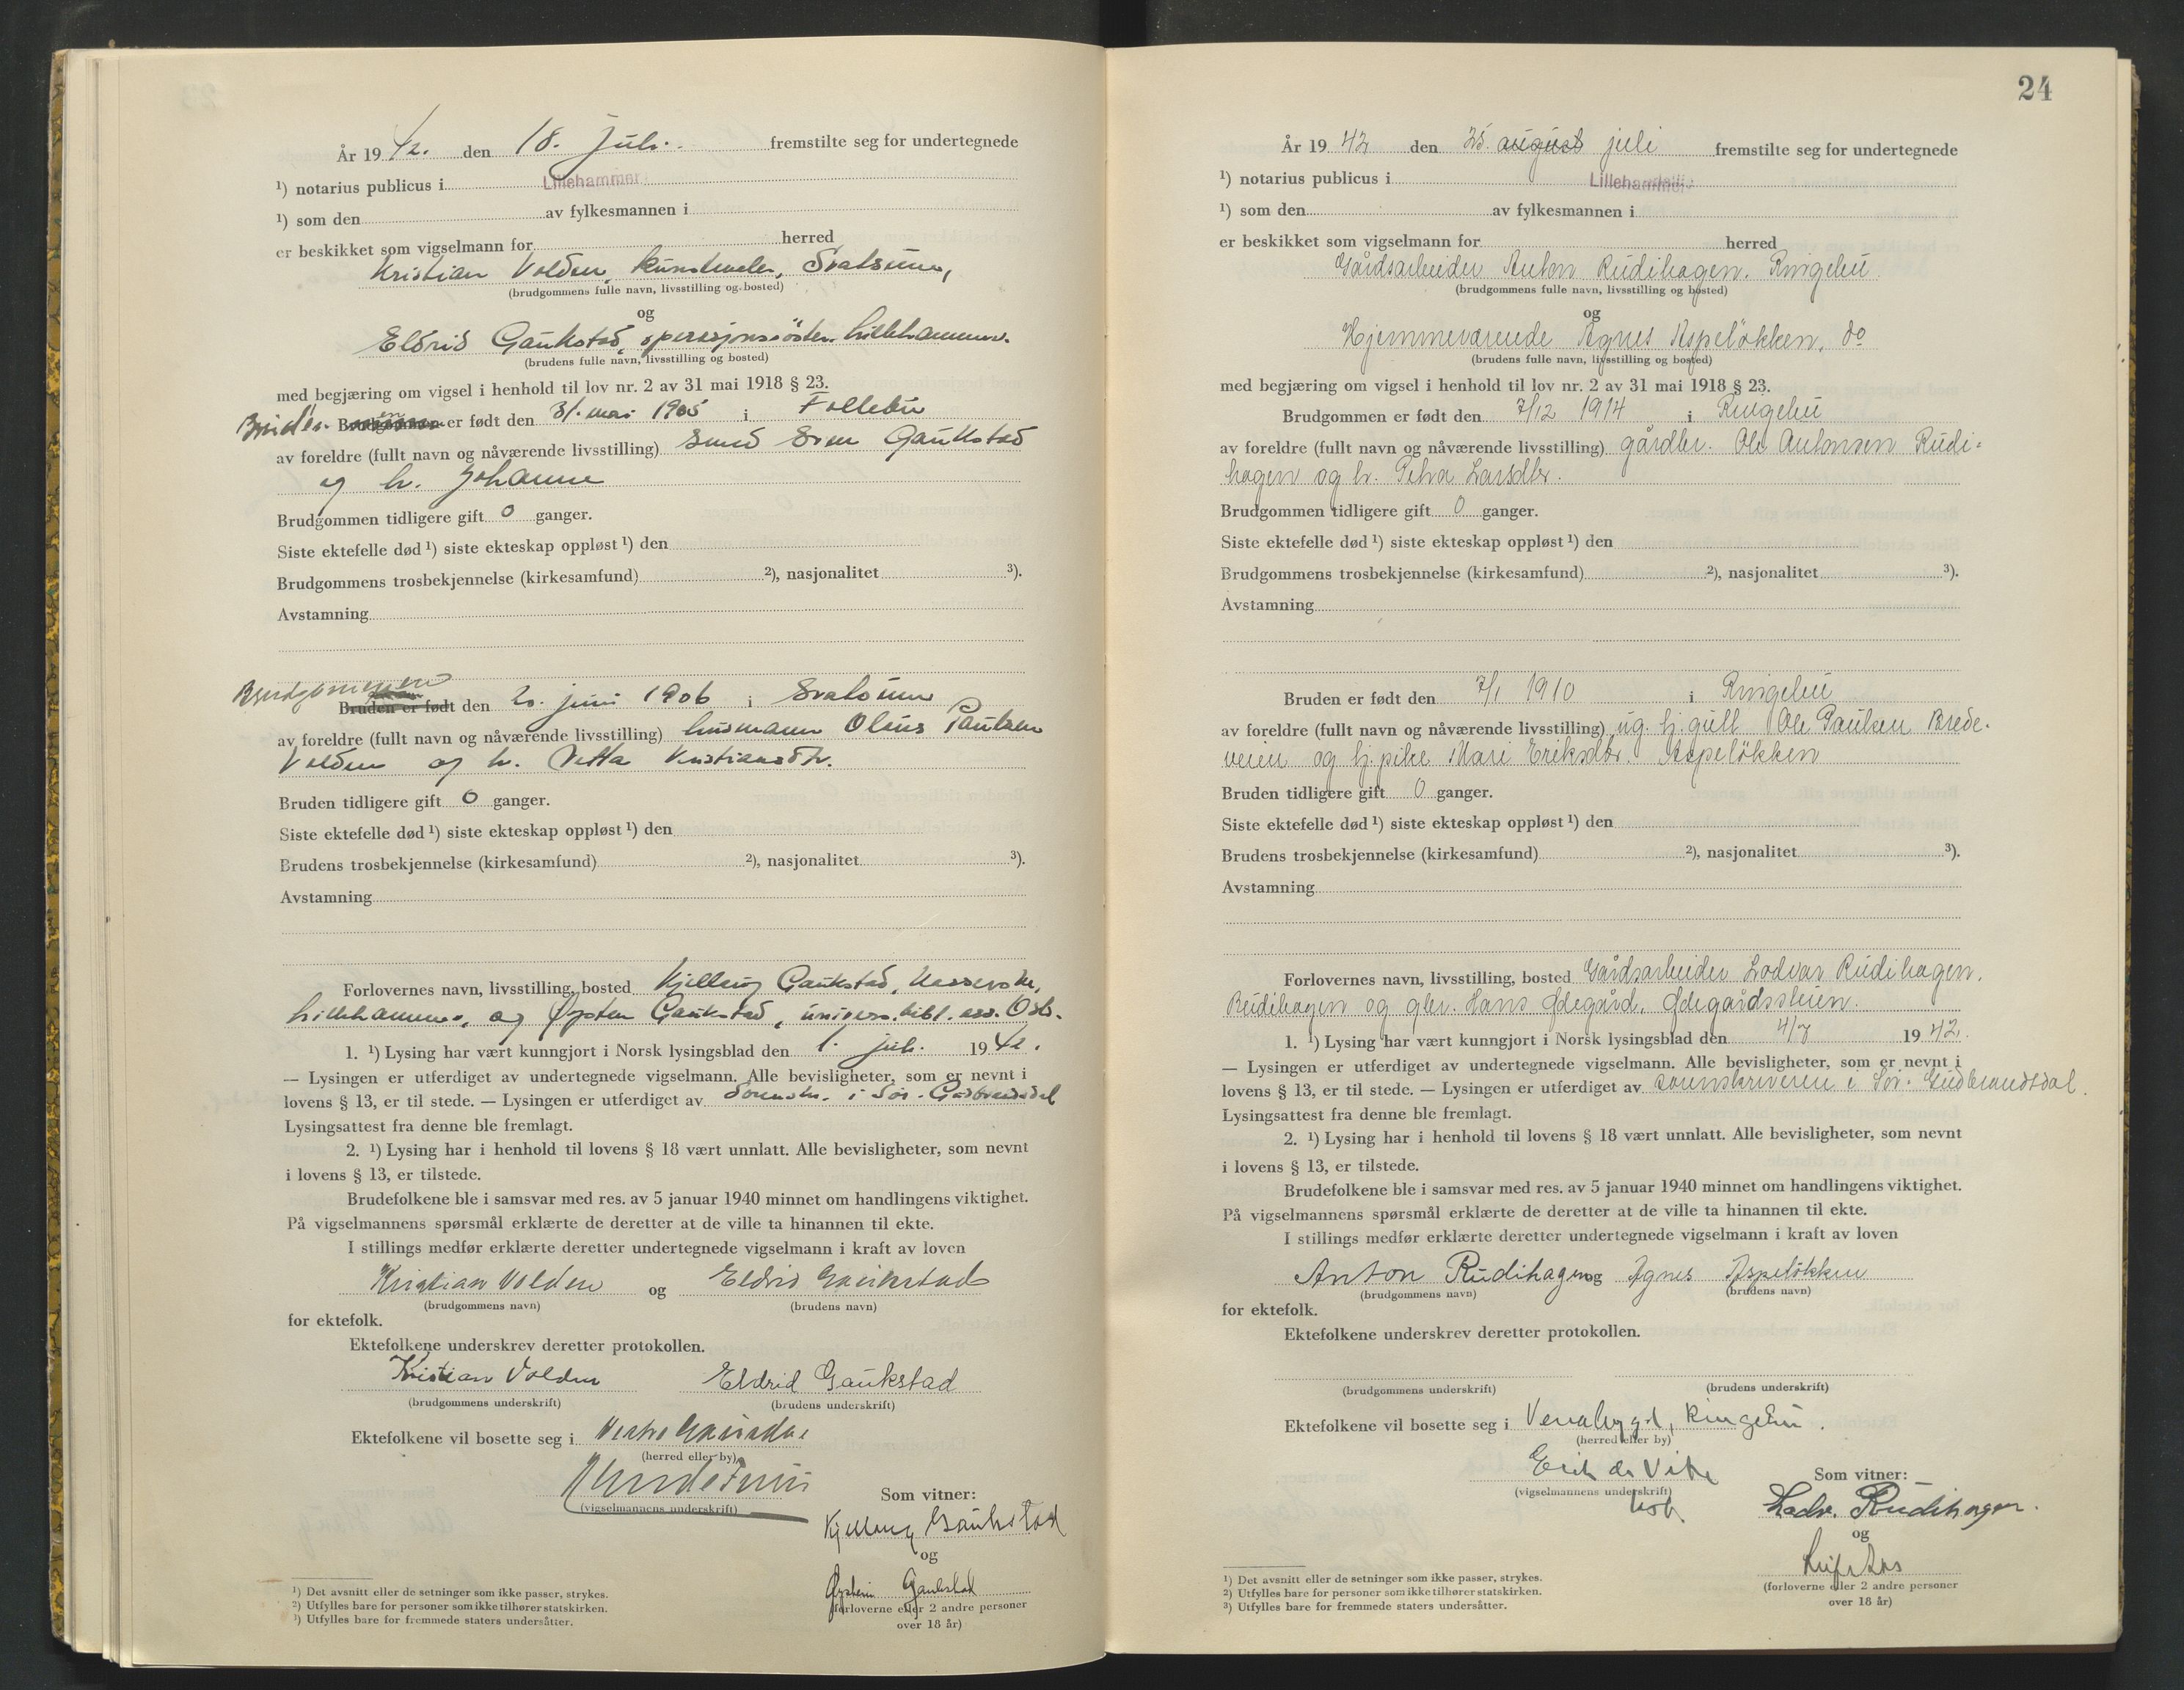 År 19 42. den 18. juli. fremstilte seg for undertegnede
¹) notarius publicus i Lillehammer
¹) som den av fylkesmannen i
er beskikket som vigselmann for herred
Kristian Volden, kunstmaler, Svatsum,
(brudgommens fulle navn, livsstilling og bosted)
og
Eldrid Gaukstad, operasjonssöster. Lillehammer.
(brudens fulle navn, livsstilling og bosted)
med begjæring om vigsel i henhold til lov nr. 2 av 31 mai 1918 § 23.
Bruden er født den 31. mai 1905 i Follebu
av foreldre (fullt navn og nåværende livsstilling) smed Sven Gaukstad
og h. Johanne
Brudgommen tidligere gift 0 ganger.
Siste ektefelle død ¹) siste ekteskap oppløst ¹) den
Brudgommens trosbekjennelse (kirkesamfund) ²), nasjonalitet ³).
Avstamning
Brudgommen
Bruden er født den 20. juni 1906 i Svatsum
av foreldre (fullt navn og nåværende livsstilling) husmann Olaus Paulsen
Volden og h. Netta Kristiansdtr.
Bruden tidligere gift 0 ganger.
Siste ektefelle død ¹) siste ekteskap oppløst ¹) den
Brudens trosbekjennelse (kirkesamfund) ²), nasjonalitet ³).
Avstamning
Forlovernes navn, livsstilling, bosted Kjellaug Gaukstad,
Lillehammer, og Øysten Gaukstad, univers.bibl. ass. Oslo.
1. ¹) Lysing har vært kunngjort i Norsk lysingsblad den 1. juli. 19 42.
— Lysingen er utferdiget av undertegnede vigselmann. Alle bevisligheter, som er nevnt i
lovens § 13, er til stede. — Lysingen er utferdiget av Sorenskr. i Sør-Gudbrandsdal
Lysingsattest fra denne ble fremlagt.
2. ¹) Lysing har i henhold til lovens § 18 vært unnlatt. Alle bevisligheter, som nevnt
i lovens § 13, er tilstede.
Brudefolkene ble i samsvar med res. av 5 januar 1940 minnet om handlingens viktighet.
På vigselmannens spørsmål erklærte de deretter at de ville ta hinannen til ekte.
I stillings medfør erklærte deretter undertegnede vigselmann i kraft av loven
Kristian Volden og Eldrid Gaukstad
(brudgommens navn) (brudens navn)
for ektefolk.
Ektefolkene underskrev deretter protokollen.
Kristian Volden Eldrid Gaukstad
(brudgommens underskrift) (brudens underskrift)
Ektefolkene vil bosette seg i Vestre Gausdal
(herred eller by)
(vigselmannens underskrift)
Som vitner:
Kjellaug Gaukstad
og
Øystein Gaukstad
(forloverne eller 2 andre personer
over 18 år)
¹) Det avsnitt eller de setninger som ikke passer, strykes.
²) Utfylles bare for personer som ikke tilhører statskirken.
³) Utfylles bare for fremmede staters undersåtter.
24
År 19 42 den 25. august juli fremstilte seg for undertegnede
¹) notarius publicus i Lillehammer
¹) som den av fylkesmannen i
er beskikket som vigselmann for herred
Gårdsarbeider Anton Rudihagen. Ringebu
(brudgommens fulle navn, livsstilling og bosted)
og
Hjemmeværende Agnes Aspelökken, do
(brudens fulle navn, livsstilling og bosted)
med begjæring om vigsel i henhold til lov nr. 2 av 31 mai 1918 § 23.
Brudgommen er født den 7/12 1914 i Ringebu
av foreldre (fullt navn og nåværende livsstilling) gårdbr. Ole Antonsen Rudi-
hagen og h. Petra Larsdtr.
Brudgommen tidligere gift 0 ganger.
Siste ektefelle død ¹) siste ekteskap oppløst ¹) den
Brudgommens trosbekjennelse (kirkesamfund) ²), nasjonalitet ³).
Avstamning
Bruden er født den 7/1 1910 i Ringebu
av foreldre (fullt navn og nåværende livsstilling) ug. hj.gutt Ole Paulsen Brede-
veien og hj.pike Mari Eriksdtr. Aspelökken
Bruden tidligere gift 0 ganger.
Siste ektefelle død ¹) siste ekteskap oppløst ¹) den
Brudens trosbekjennelse (kirkesamfund) ²), nasjonalitet ³).
Avstamning
Forlovernes navn, livsstilling, bosted Gårdsarbeider Lodvar Rudihagen,
Rudihagen og gbr. Hans Ødegård, Ødegårdssteien.
1. ¹) Lysing har vært kunngjort i Norsk lysingsblad den 4/7 19 42.
— Lysingen er utferdiget av undertegnede vigselmann. Alle bevisligheter, som er nevnt i
lovens § 13, er til stede. — Lysingen er utferdiget av sorenskriveren i Sør-Gudbrandsdal.
Lysingsattest fra denne ble fremlagt.
2. ¹) Lysing har i henhold til lovens § 18 vært unnlatt. Alle bevisligheter, som nevnt
i lovens § 13, er tilstede.
Brudefolkene ble i samsvar med res. av 5 januar 1940 minnet om handlingens viktighet.
På vigselmannens spørsmål erklærte de deretter at de ville ta hinannen til ekte.
I stillings medfør erklærte deretter undertegnede vigselmann i kraft av loven
Anton Rudihagen og Agnes Aspelökken
(brudgommens navn) (brudens navn)
for ektefolk.
Ektefolkene underskrev deretter protokollen.
(brudgommens underskrift) (brudens underskrift)
Ektefolkene vil bosette seg i Venabygd, Ringebu.
(herred eller by)
Erik de Vibe
(vigselmannens underskrift)
Som vitner:
Lodv. Rudihagen.
og
(forloverne eller 2 andre personer
over 18 år)
¹) Det avsnitt eller de setninger som ikke passer, strykes.
²) Utfylles bare for personer som ikke tilhører statskirken.
³) Utfylles bare for fremmede staters undersåtter.